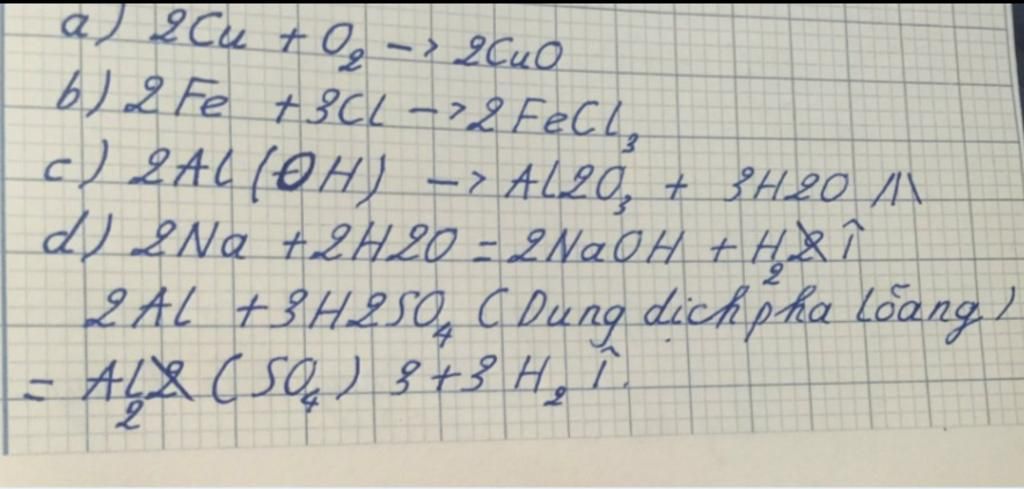 a) 2Cu + O₂ -> 2CuO
b) 2Fe + 3Cl -> 2FeCl₃
c) 2Al(OH) -> Al2O₃ + 3H2O
d) 2Na + 2H2O = 2NaOH + H₂ ↑
2Al + 3H2SO₄ (Dung dich pha loãng)
= Al₂(SO₄)3 + 3H₂ ↑.